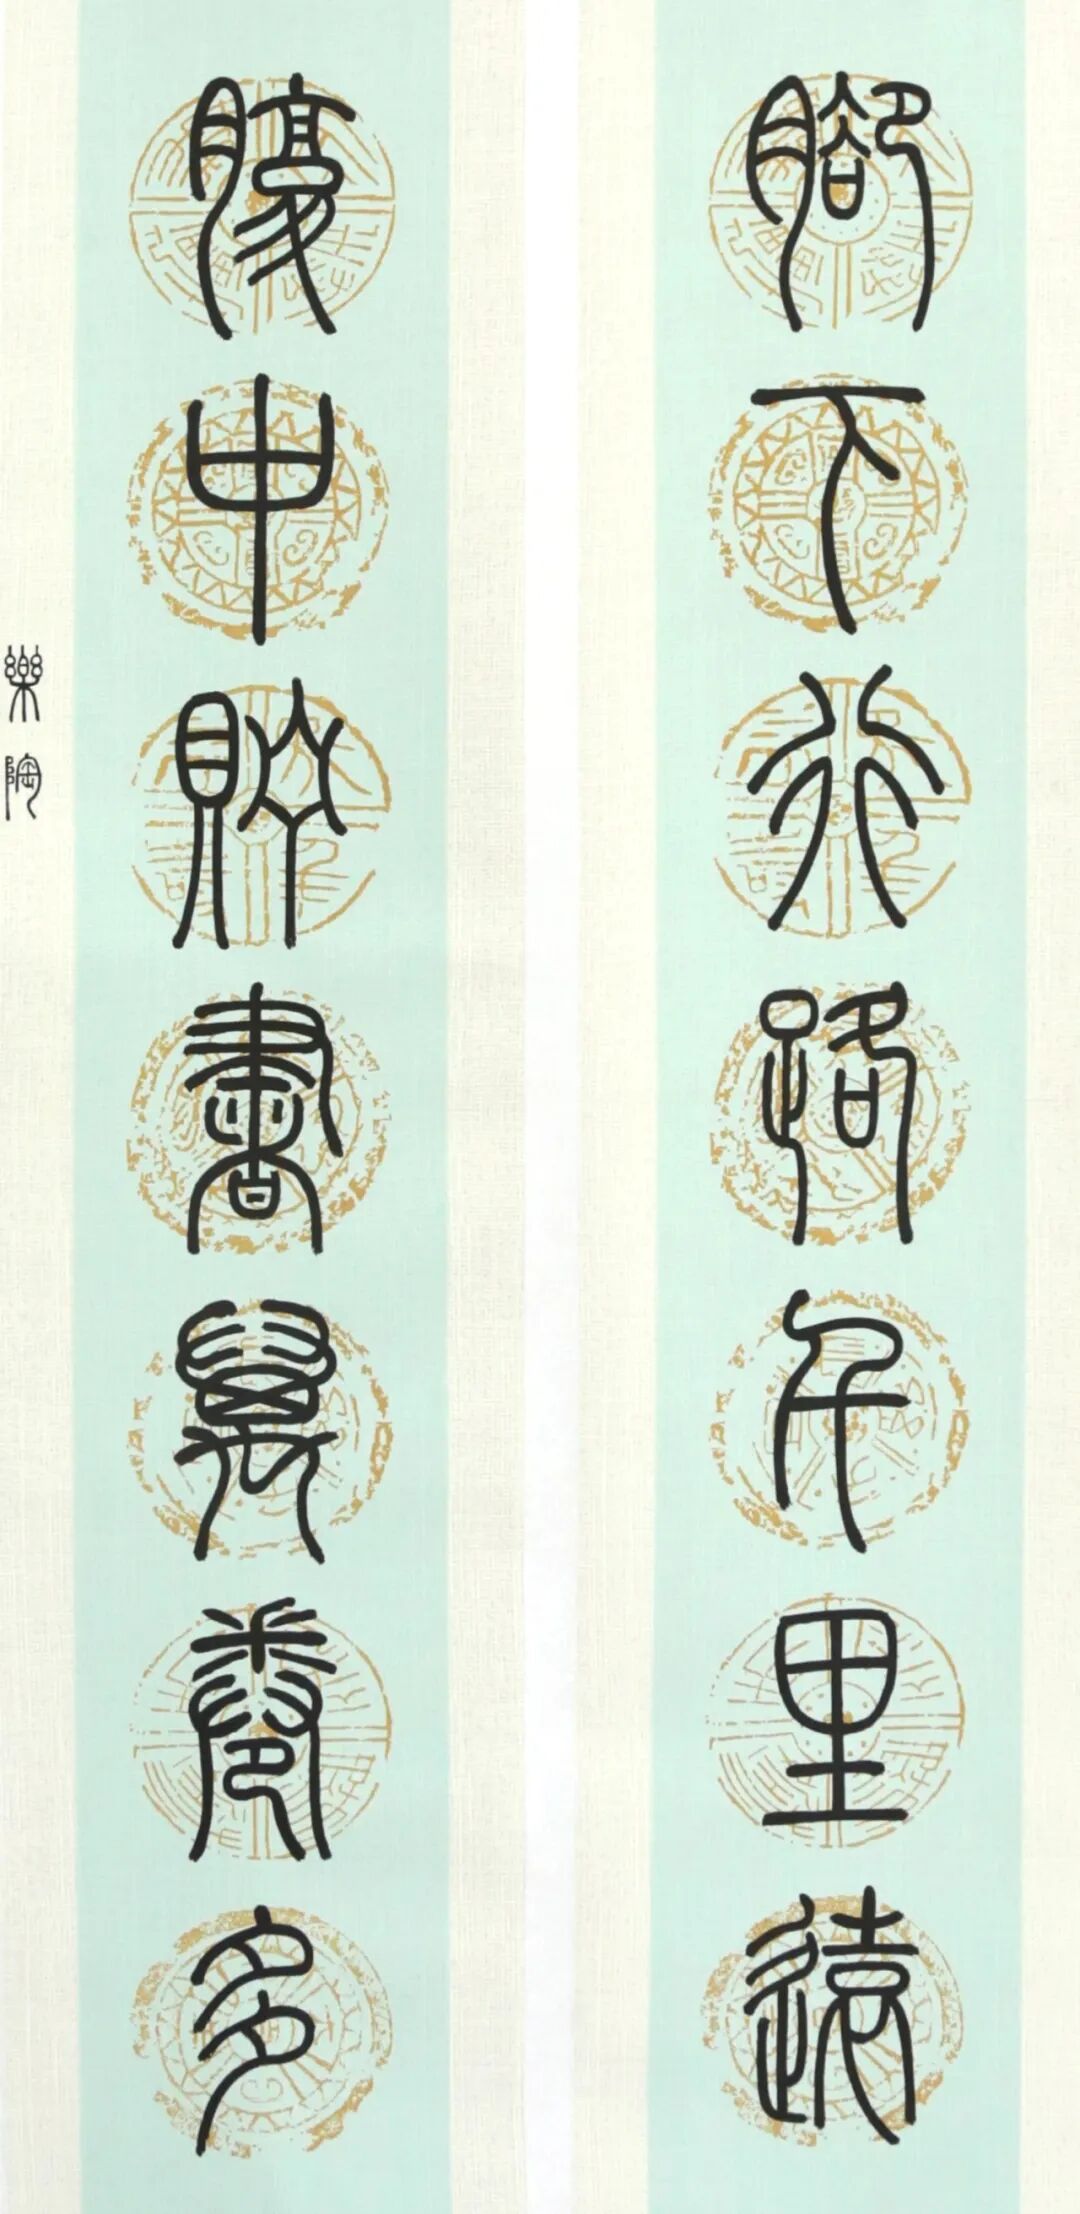 腳下行路千里遠
腹中貯書萬卷多
樂陶